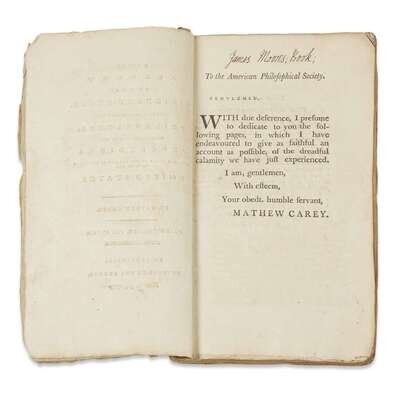 James Moores, Book;
To the American Philoſophical Society.
GENTLEMEN,
WITH due deference, I preſume
to dedicate to you the fol-
lowing pages, in which I have
endeavoured to give as faithful an
account as poſſible, of the dreadful
calamity we have juſt experienced.
I am, gentlemen,
With eſteem,
Your obedt. humble ſervant,
MATHEW CAREY.